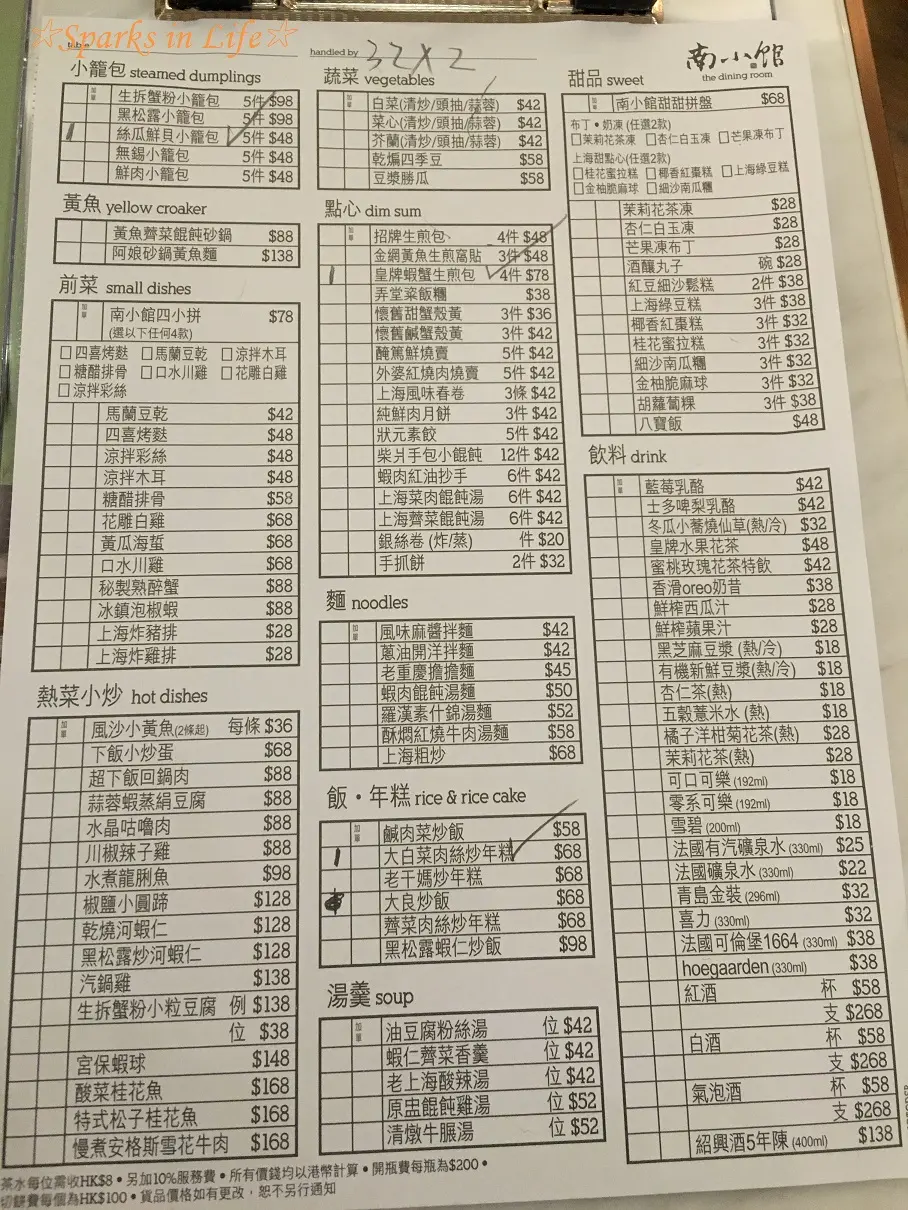 ☆Sparks in Life☆
table
handled by 32 X 2
南小館
the dining room
小籠包 steamed dumplings
加單
生拆蟹粉小籠包 5件 $98
黑松露小籠包 5件 $98
1 絲瓜鮮貝小籠包 5件 $48
無錫小籠包 5件 $48
鮮肉小籠包 5件 $48
黃魚 yellow croaker
黃魚薺菜餛飩砂鍋 $88
阿娘砂鍋黃魚麵 $138
前菜 small dishes
加單
南小館四小拼 $78
(選以下任何4款)
☐四喜烤麩 ☐馬蘭豆乾 ☐涼拌木耳
☐糖醋排骨 ☐口水川雞 ☐花雕白雞
☐涼拌彩絲
馬蘭豆乾 $42
四喜烤麩 $48
涼拌彩絲 $48
涼拌木耳 $48
糖醋排骨 $58
花雕白雞 $68
黃瓜海蜇 $68
口水川雞 $68
秘製熟醉蟹 $88
冰鎮泡椒蝦 $88
上海炸豬排 $28
上海炸雞排 $28
熱菜小炒 hot dishes
加單
風沙小黃魚(2條起) 每條 $36
下飯小炒蛋 $68
超下飯回鍋肉 $88
蒜蓉蝦蒸絹豆腐 $88
水晶咕嚕肉 $88
川椒辣子雞 $88
水煮龍脷魚 $98
椒鹽小圓蹄 $128
乾燒河蝦仁 $128
黑松露炒河蝦仁 $128
汽鍋雞 $138
生拆蟹粉小粒豆腐 例 $138
位 $38
宮保蝦球 $148
酸菜桂花魚 $168
特式松子桂花魚 $168
慢煮安格斯雪花牛肉 $168
蔬菜 vegetables
加單
白菜(清炒/頭抽/蒜蓉) $42
菜心(清炒/頭抽/蒜蓉) $42
芥蘭(清炒/頭抽/蒜蓉) $42
乾煸四季豆 $58
豆漿勝瓜 $58
點心 dim sum
加單
招牌生煎包 4件 $48
金網黃魚生煎窩貼 3件 $48
1 皇牌蝦蟹生煎包 4件 $78
弄堂粢飯糰 $38
懷舊甜蟹殼黃 3件 $36
懷舊鹹蟹殼黃 3件 $42
醃篤鮮燒賣 5件 $42
外婆紅燒肉燒賣 5件 $42
上海風味春卷 3條 $42
純鮮肉月餅 3件 $42
狀元素餃 5件 $42
柴爿手包小餛飩 12件 $42
蝦肉紅油抄手 6件 $42
上海菜肉餛飩湯 6件 $42
上海薺菜餛飩湯 6件 $42
銀絲卷 (炸/蒸) 件 $20
手抓餅 2件 $32
麵 noodles
加單
風味麻醬拌麵 $42
蔥油開洋拌麵 $42
老重慶擔擔麵 $45
蝦肉餛飩湯麵 $50
羅漢素什錦湯麵 $52
酥燜紅燒牛肉湯麵 $58
上海粗炒 $68
飯・年糕 rice & rice cake
加單
鹹肉菜炒飯 $58
1 大白菜肉絲炒年糕 $68
老干媽炒年糕 $68
大良炒飯 $68
薺菜肉絲炒年糕 $68
黑松露蝦仁炒飯 $98
湯羹 soup
加單
油豆腐粉絲湯 位 $42
蝦仁薺菜香羹 位 $42
老上海酸辣湯 位 $42
原盅餛飩雞湯 位 $52
清燉牛腒湯 位 $52
甜品 sweet
加單
南小館甜甜拼盤 $68
布丁・奶凍 (任選2款)
☐茉莉花茶凍 ☐杏仁白玉凍 ☐芒果凍布丁
上海甜點心(任選2款)
☐桂花蜜拉糕 ☐椰香紅棗糕 ☐上海綠豆糕
☐金柚脆麻球 ☐細沙南瓜糰
茉莉花茶凍 $28
杏仁白玉凍 $28
芒果凍布丁 $28
酒釀丸子 碗 $28
紅豆細沙鬆糕 2件 $38
上海綠豆糕 3件 $38
椰香紅棗糕 3件 $32
桂花蜜拉糕 3件 $32
細沙南瓜糰 3件 $32
金柚脆麻球 3件 $32
胡蘿蔔粿 3件 $38
八寶飯 $48
飲料 drink
加單
藍莓乳酪 $42
士多啤梨乳酪 $42
冬瓜小蕎燒仙草(熱/冷) $32
皇牌水果花茶 $48
蜜桃玫瑰花茶特飲 $42
香滑oreo奶昔 $38
鮮榨西瓜汁 $28
鮮榨蘋果汁 $28
黑芝麻豆漿 (熱/冷) $18
有機新鮮豆漿(熱/冷) $18
杏仁茶(熱) $18
五穀薏米水 (熱) $18
橘子洋柑菊花茶(熱) $28
茉莉花茶(熱) $28
可口可樂 (192ml) $18
零系可樂 (192ml) $18
雪碧 (200ml) $18
法國有汽礦泉水 (330ml) $25
法國礦泉水 (330ml) $22
青島金裝 (296ml) $32
喜力 (330ml) $32
法國可倫堡1664 (330ml) $38
hoegaarden (330ml) $38
紅酒 杯 $58
支 $268
白酒 杯 $58
支 $268
氣泡酒 杯 $58
支 $268
紹興酒5年陳 (400ml) $138
茶水每位需收HK$8・另加10%服務費・所有價錢均以港幣計算・開瓶費每瓶為$200・
切餅費每個為HK$100・貨品價格如有更改，恕不另行通知